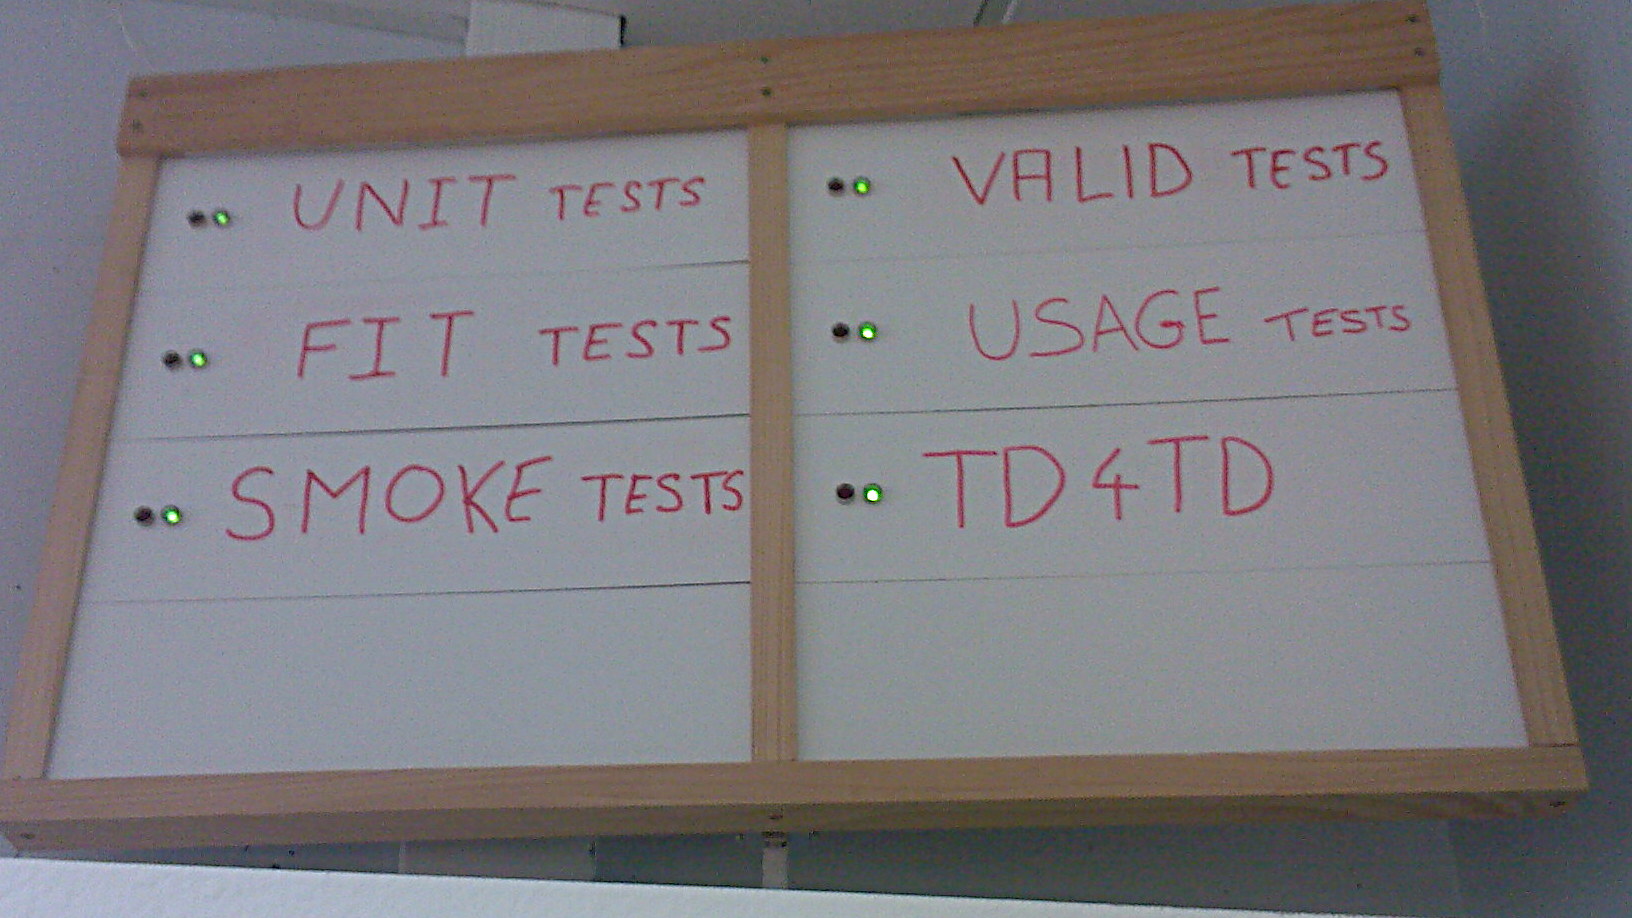 UNIT TESTS
FIT TESTS
SMOKE TESTS
VALID TESTS
USAGE TESTS
TD4TD